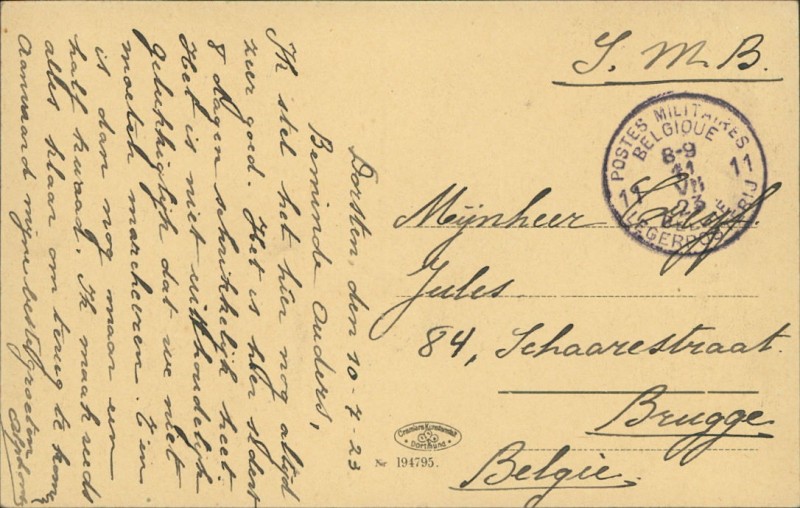 Dorsten, den 10-7-23
Beminde Ouders,
Ik stel het hier nog altijd
zeer goed. Het is hier sedert
8 dagen schrikkelijk heet.
Het is niet uit houdelijk
gelukkiglijk dat we niet
moeten marcheeren. t'en
is dan nog maar een
half kwaad. Ik maak reeds
alles klaar om terug te komen
Aanvaard mijne beste groeten
Alphons
S. M. B.
POSTES MILITAIRES
BELGIQUE
8-9
11
VII
23
11 11
LEGERPOSTERIJ
Mijnheer
Jules
84, Schaarestraat.
Brugge
België.
Cramers Kunstanstalt
Dortmund
Nr 194795.